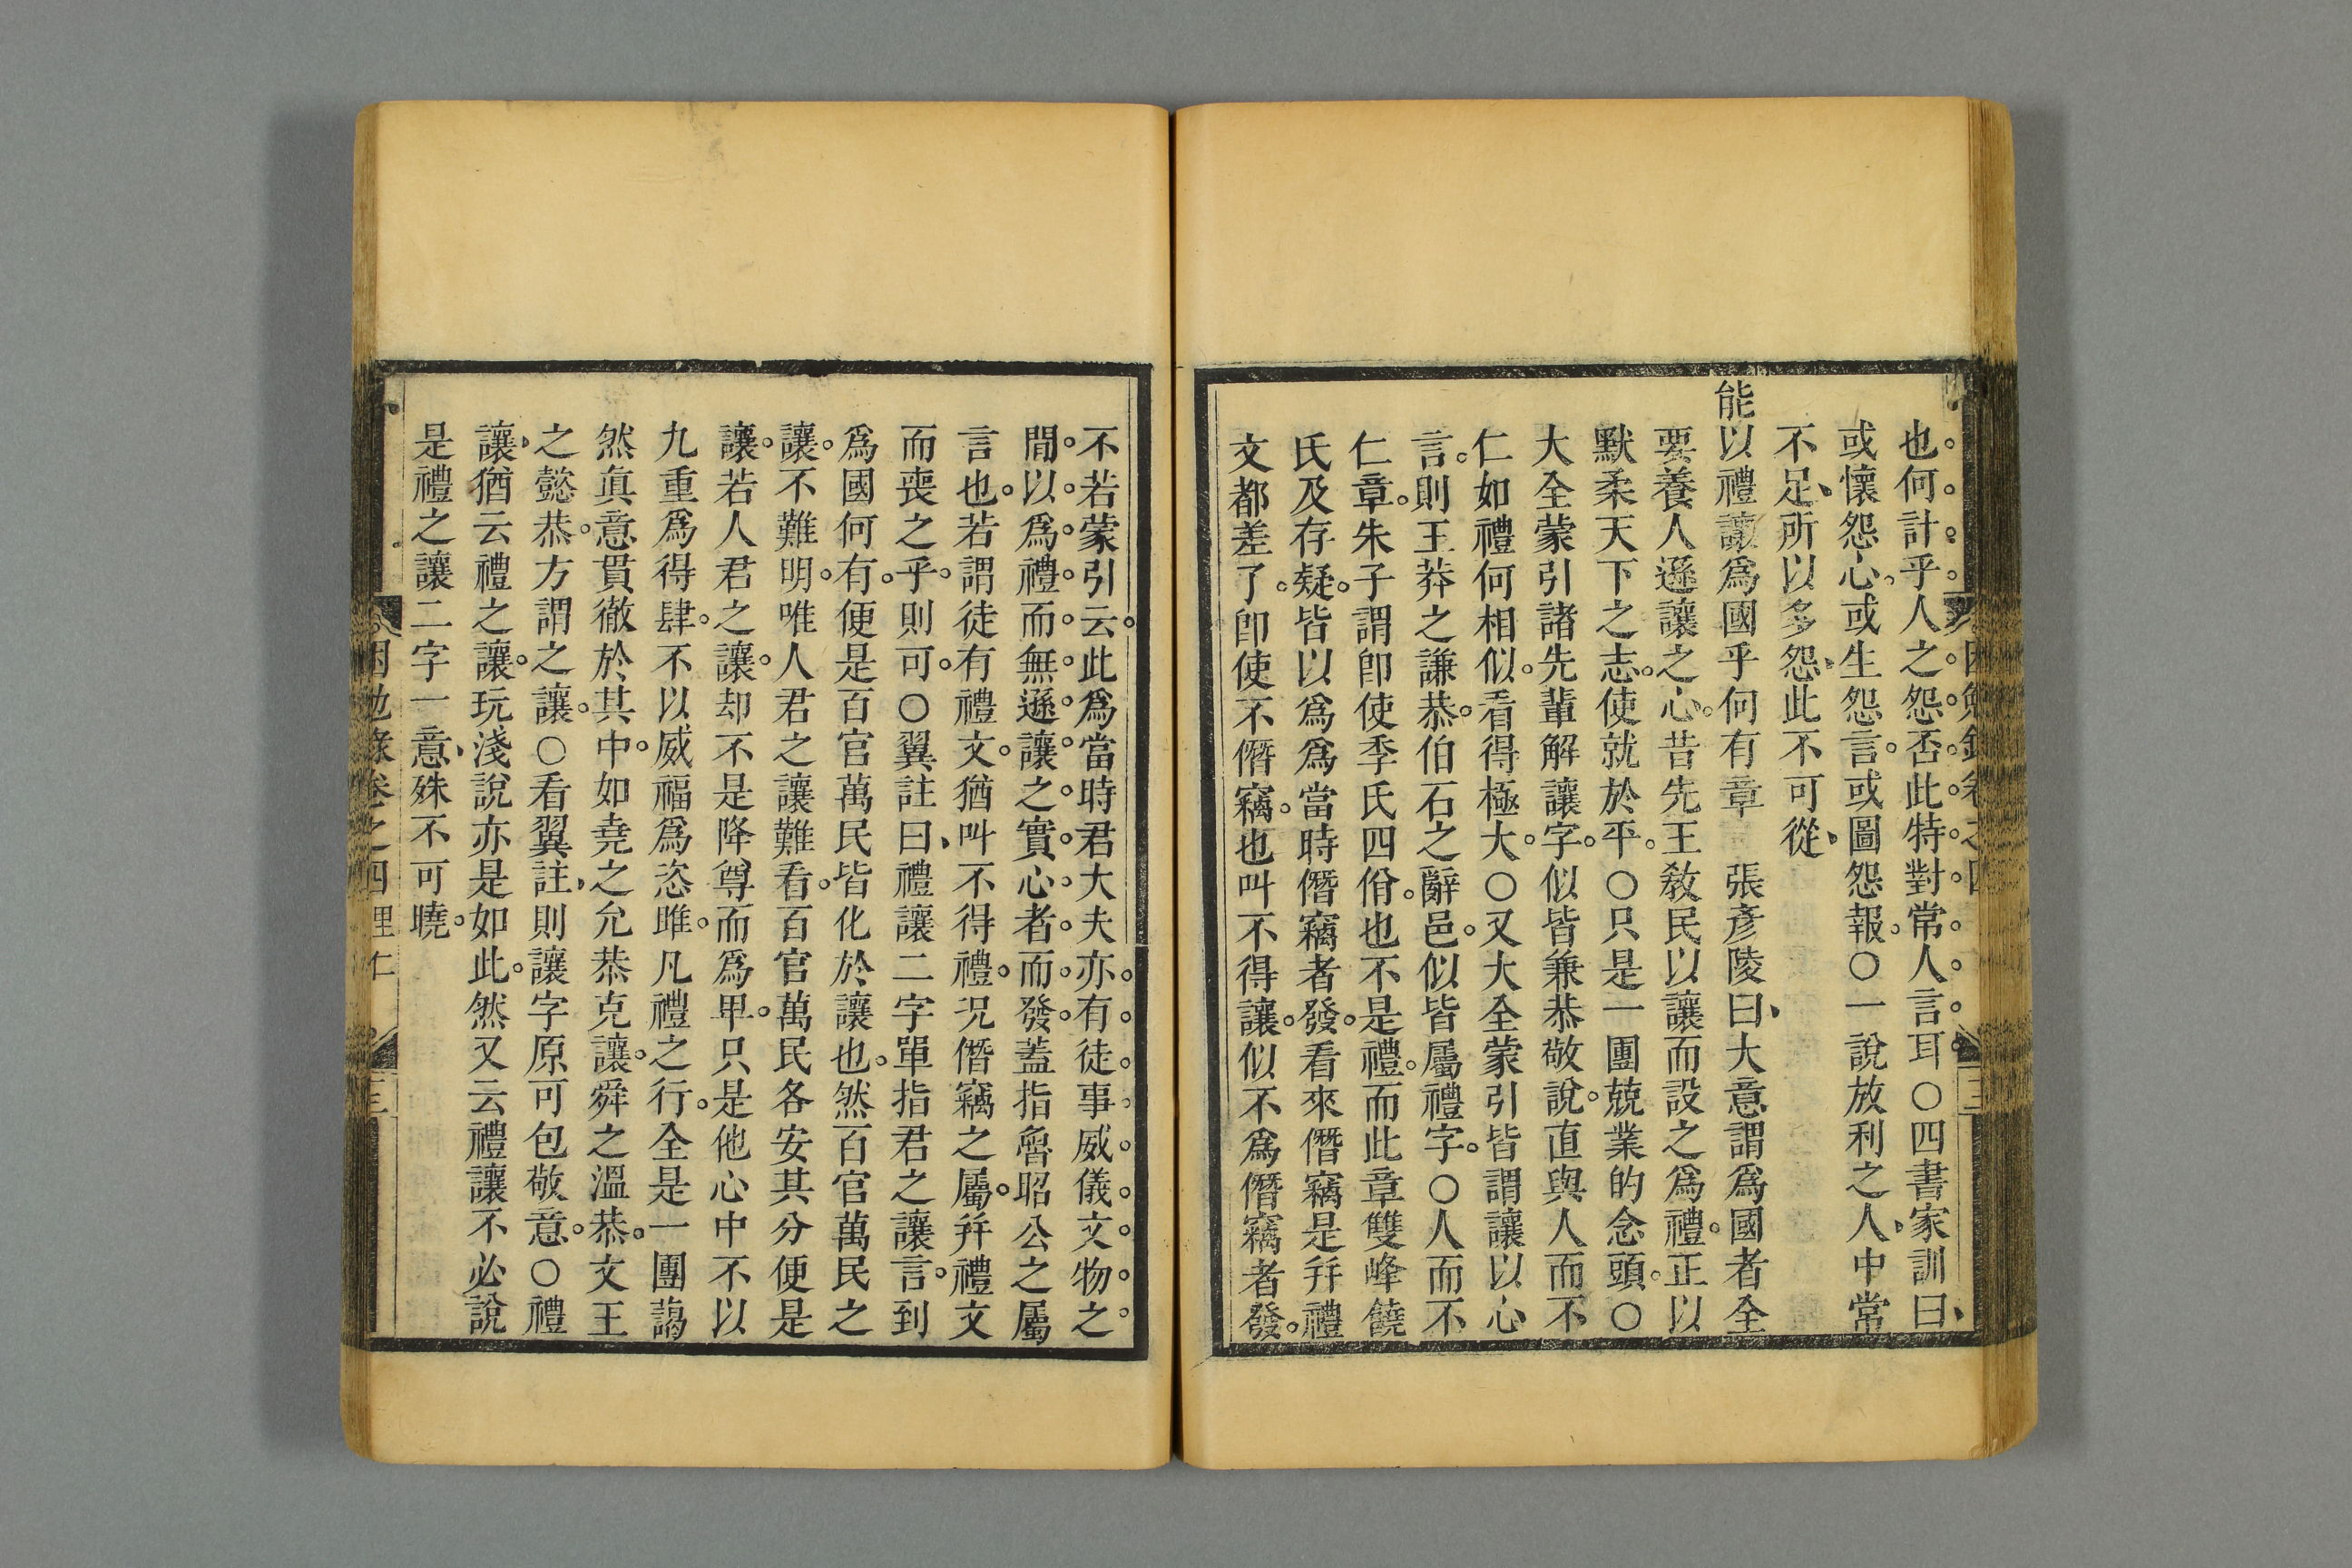 也何計乎人之怨否此特對常人言耳○四書家訓曰
或懷怨心或生怨言或圖怨報○一說放利之人中常
不足所以多怨此不可從
能以禮讓爲國乎何有章　張彥陵曰大意謂爲國者全
要養人遜讓之心昔先王敎民以讓而設之爲禮正以
默柔天下之志使就於平○只是一團兢業的念頭○
大全蒙引諸先輩解讓字似皆兼恭敬說直與人而不
仁如禮何相似看得極大○又大全蒙引皆謂讓以心
言則王莽之謙恭伯石之辭邑似皆屬禮字○人而不
仁章朱子謂卽使季氏四佾也不是禮而此章雙峰饒
氏及存疑皆以爲爲當時僭竊者發看來僭竊是幷禮
文都差了卽使不僭竊也叫不得讓似不爲僭竊者發
不若蒙引云此爲當時君大夫亦有徒事威儀文物之
間以爲禮而無遜讓之實心者而發蓋指魯昭公之屬
言也若謂徒有禮文猶叫不得禮況僭竊之屬幷禮文
而喪之乎則可○翼註曰禮讓二字單指君之讓言到
爲國何有便是百官萬民皆化於讓也然百官萬民之
讓不難明唯人君之讓難看百官萬民各安其分便是
讓若人君之讓却不是降尊而爲卑只是他心中不以
九重爲得肆不以威福爲恣雎凡禮之行全是一團藹
然眞意貫徹於其中如堯之允恭克讓舜之溫恭文王
之懿恭方謂之讓○看翼註則讓字原可包敬意○禮
讓猶云禮之讓玩淺說亦是如此然又云禮讓不必說
是禮之讓二字一意殊不可曉
困勉錄卷之四 里仁 三